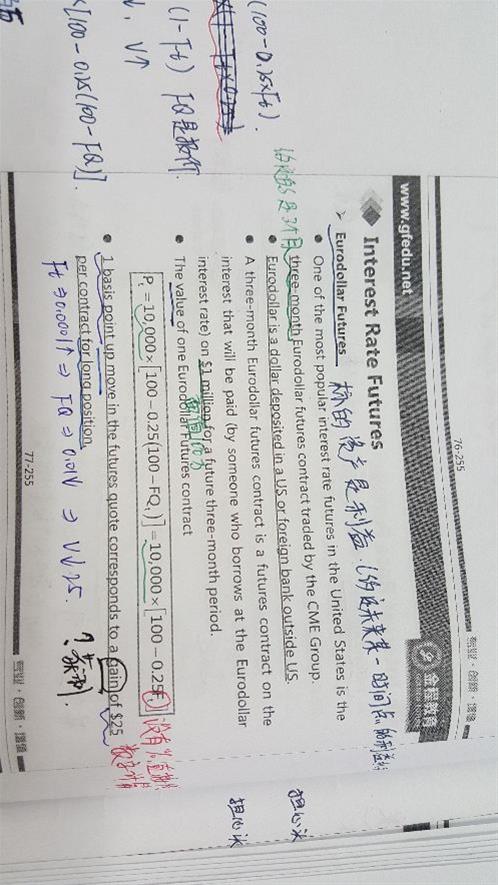 76-255
专业·创新·增值
www.gfedu.net
金程教育
Interest Rate Futures
Eurodollar Futures 标的资产是利率
One of the most popular interest rate futures in the United States is the
three-month Eurodollar futures contract traded by the CME Group.
Eurodollar is a dollar deposited in a US or foreign bank outside US.
A three-month Eurodollar futures contract is a futures contract on the
interest that will be paid (by someone who borrows at the Eurodollar
interest rate) on $1 million for a future three-month period.
The value of one Eurodollar Futures contract
Pt = 10,000×[100−0.25(100−FQt)] = 10,000×[100−0.25Ft]
1 basis point up move in the futures quote corresponds to a gain of $25
per contract for long position.
Ft⇒0.0001↑ ⇒ FQ⇒0.01↓ ⇒ V↓25.
(100-0.25×Ft).
(1-Ft) FQ是报价.
V↑
×[100-0.25(100-FQ)].
担心涨
担心决
77-255
专业·创新·增值